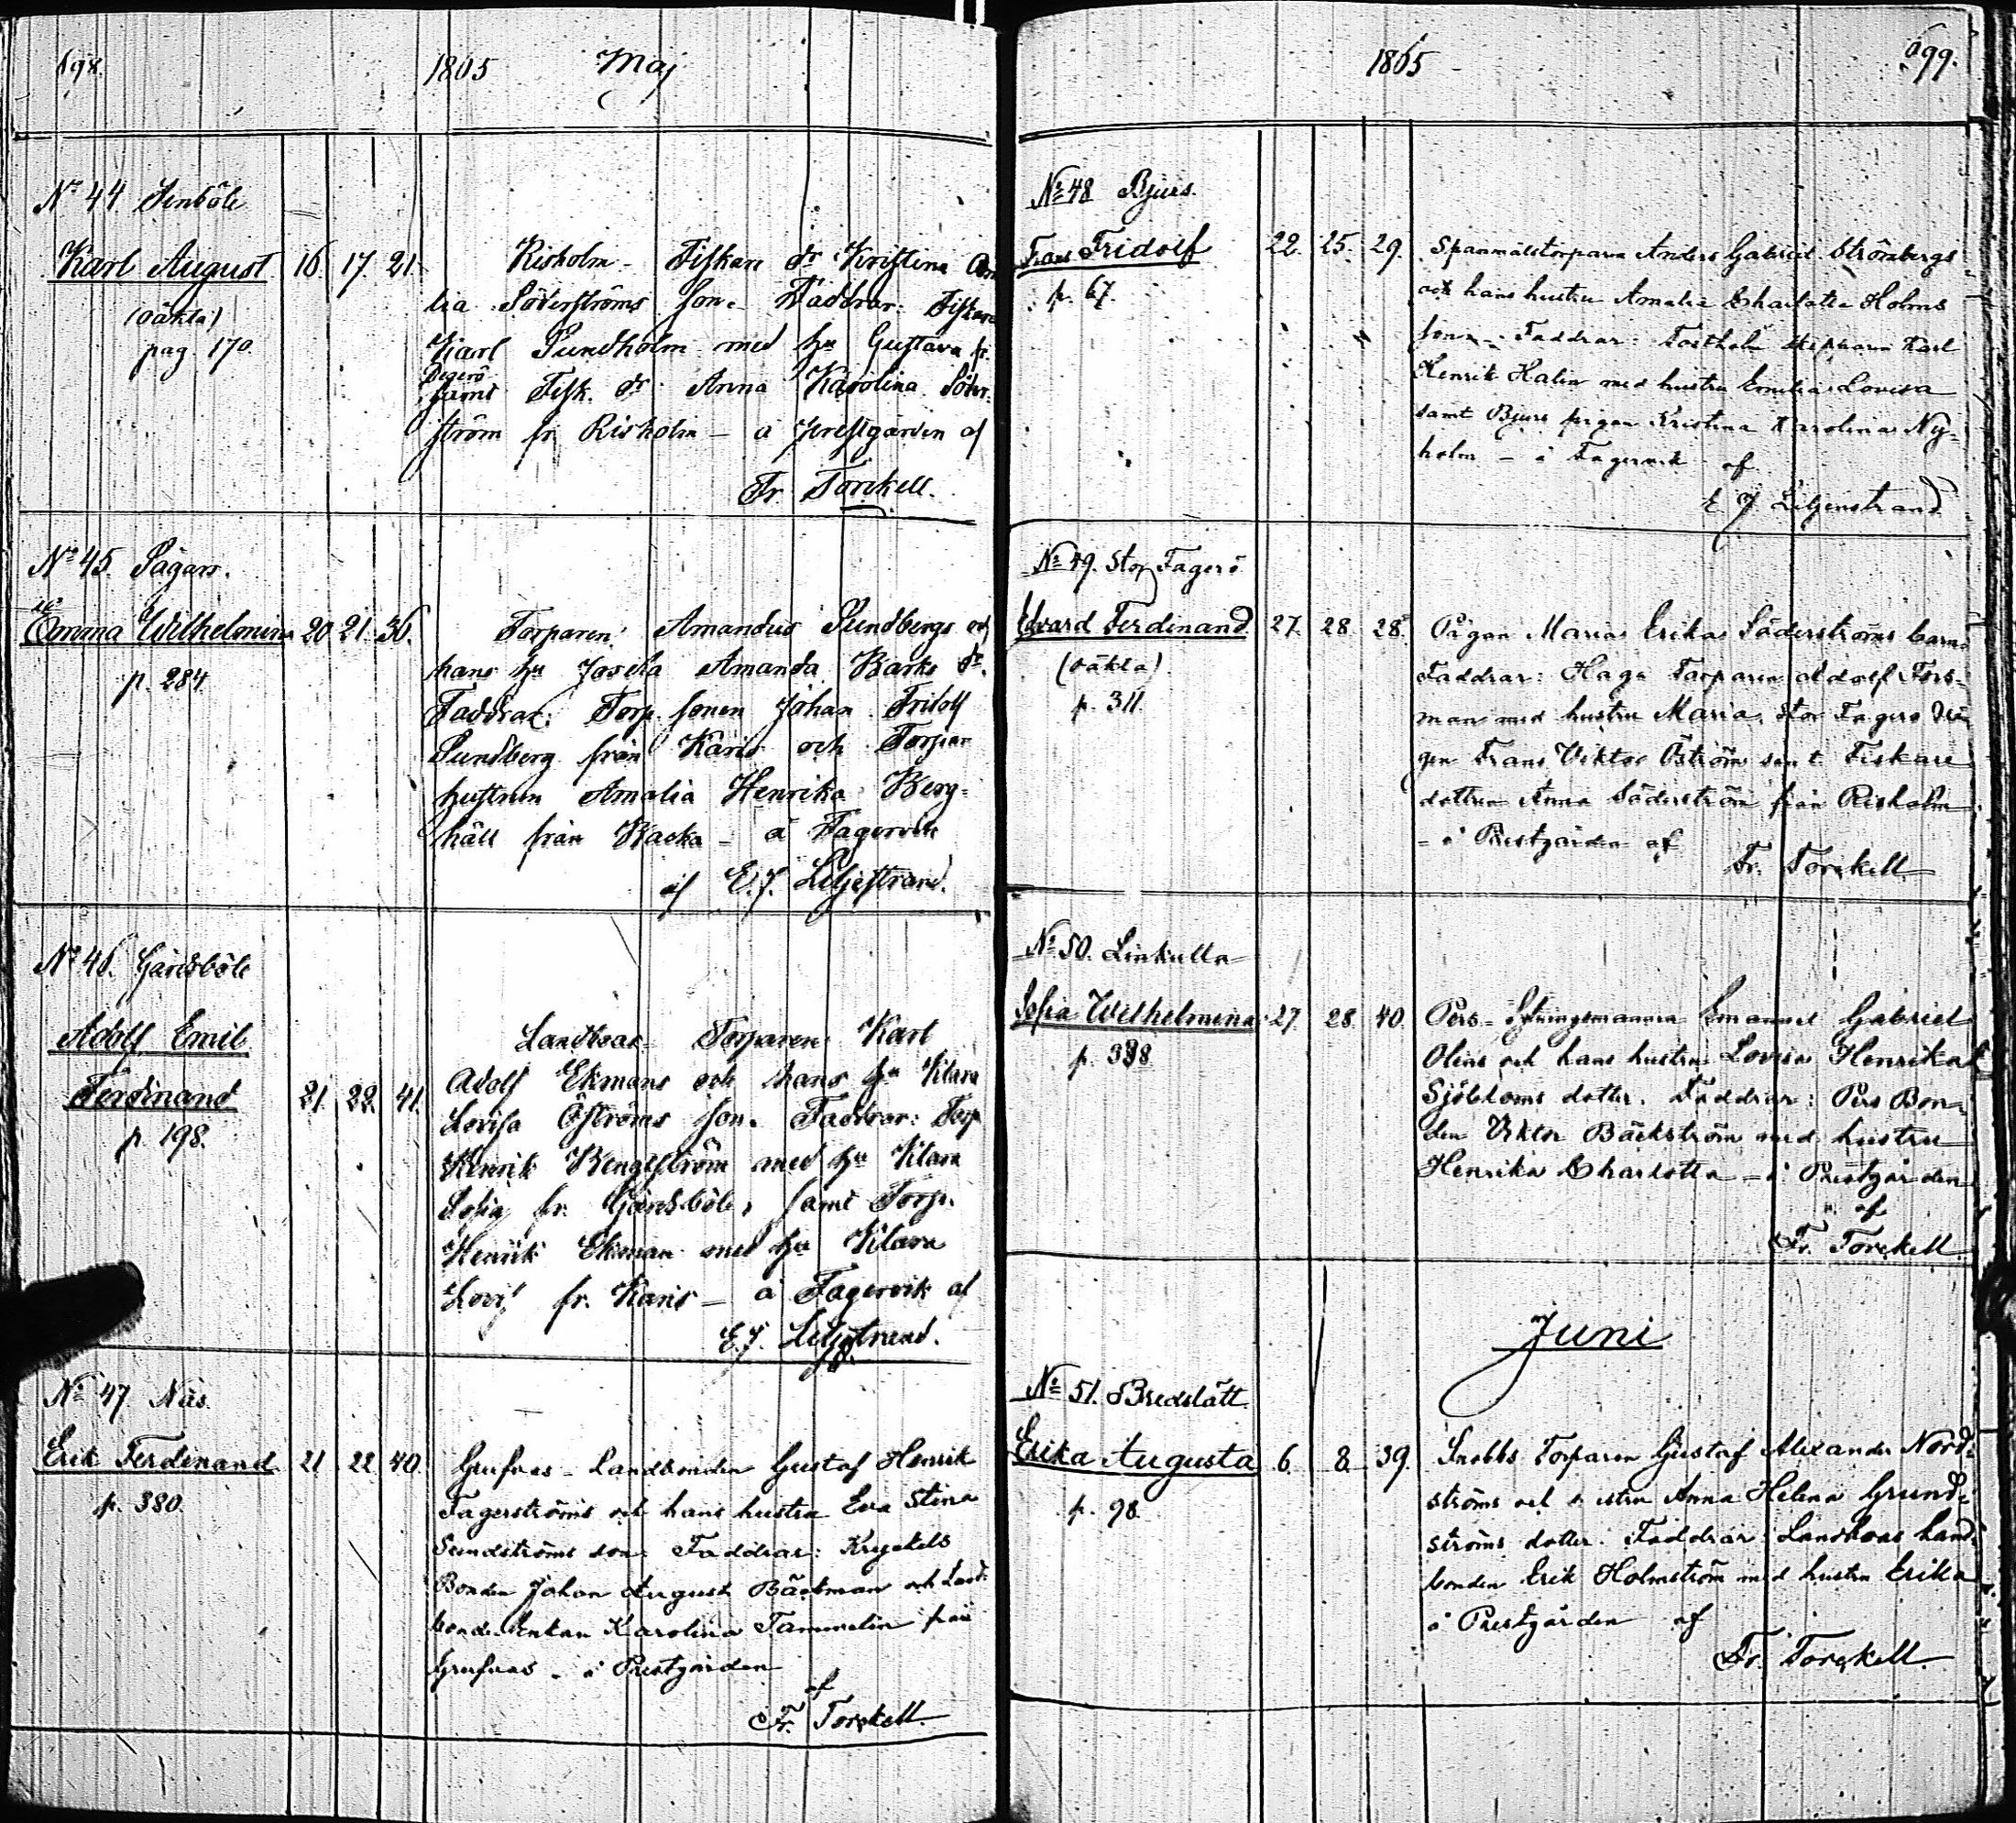 698.
1865 Maj
No 44 Senböle
Karl August 16. 17. 21.
(oäkta)
pag. 170.
Risholm - Fiskare dr Kristina Ama
lia Söderströms son. Faddrar: Fiskare
Karl Sundholm med hu Gustava fr.
Degerö
samt Fisk. dr Anna Karolina Söder-
ström fr. Risholm - å Prestgården af
Fr. Torckell.
No 45. Pägars.
Emma Wilhelmina 20 21. 36.
p. 284.
Torparen Amandus Sundbergs och
hans hu Josefa Amanda Barks dr.
Faddrar: Torp. sonen Johan Fridolf
Sundberg från Karis och Torpar
hustrun Amalia Henrika Berg-
häll från Backa - å Fagervik
af E. J. Liljestrand.
No 46. Gårdsböle
Adolf Emil
Ferdinand 21. 22. 41.
p. 198.
Landboas - Torparen Karl
Adolf Ekmans och hans hu Klara
Lovisa Öströms son. Faddrar: Torp
Henrik Bengtström med hu Klara
Sofia fr. Gårdsböle, samt Torp.
Henrik Ekman med hu Klara
Lovis fr. Karis - å Fagervik af
E. J. Liljestrand.
No 47. Näs.
Erik Ferdinand 21 22 40
p. 380.
Grufvas - Landbonden Gustaf Henrik
Fagerströms och hans hustru Eva Stina
Sundströms son. Faddrar: Kryckels
Bonden Johan August Bäckman och Land-
bonde Enkan Karolina Tammelin från
Grufvas - å Prestgården
af
Fr. Torckell.
1865
699.
No 48 Bjurs.
Frans Fridolf 22. 25. 29.
p. 67.
Spanmålstorparen Anders Gabriel Strömbergs
och hans hustru Amalia Charlotta Holms
son. - Faddrar: skepparen Karl
Henrik Halin med hustru Emilia Lovisa
samt Bjurs pigan Kristina Karolina Ny-
holm - å Fagervik af
E J Liljenstrand.
No 49. Stor Fagerö
Edvard Ferdinand. 27. 28. 28.
(oäkta).
p. 311.
Pigan Maria Erika Söderströms barn.
Faddrar: Haga Torparen Adolf Fors-
man med hustru Maria, Stor Fagerö Drän
gen Frans Viktor Öström samt Fiskare
dottren Anna Söderström från Risholm
- å Prestgården af
Fr. Torckell.
No 50. Linkulla
Sofia Wilhelmina 27. 28. 40.
p. 338.
Pers - Emanuel Gabriel
Olins och hans hustru Lovisa Henrika
Sjöbloms dotter. Faddrar: Pers Bon-
den Viktor Bäckström med hustru
Henrika Charlotta - å Prestgården
af
Fr. Torckell.
Juni
No 51. Bredslätt.
Erika Augusta 6. 8. 39.
p. 98.
Snobbs Torparen Gustaf Alexander Nord-
ströms och hustru Anna Helena Grund-
ströms dotter. Faddrar: Landboas Land-
bonden Erik Holmström med hustru Erika
å Prestgården af
Fr. Torckell.